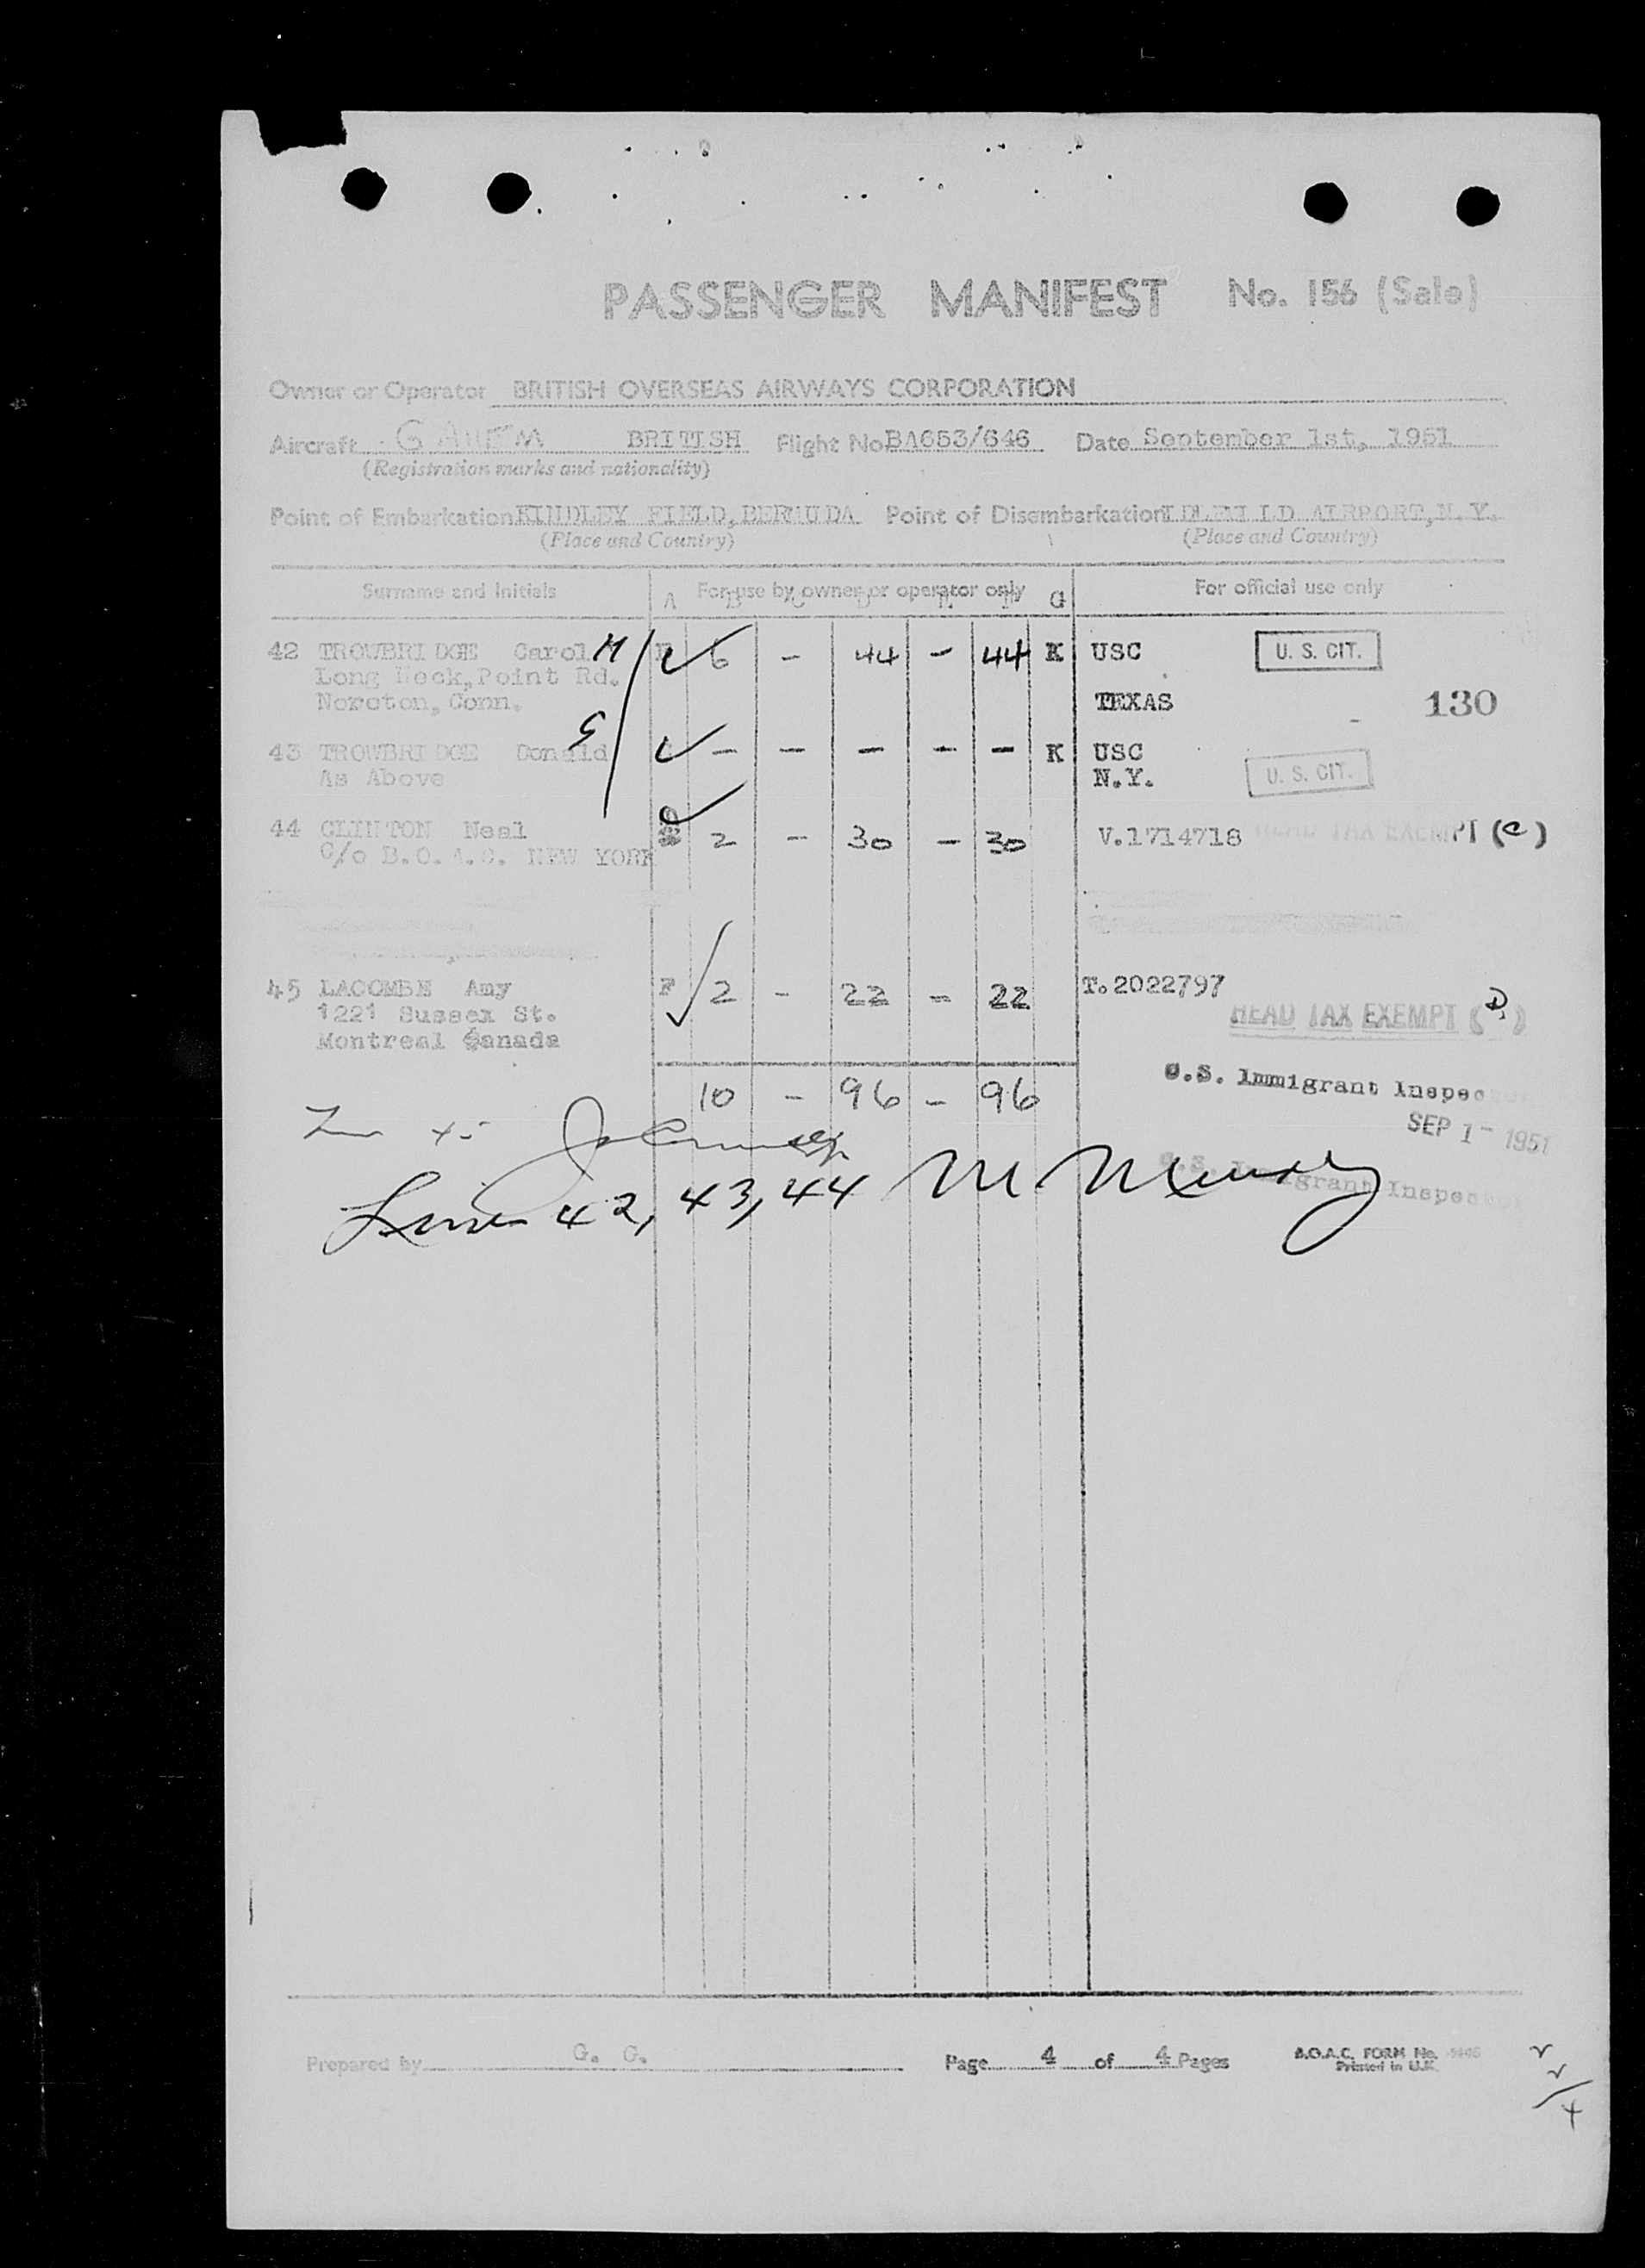 PASSENGER MANIFEST No. 156 (Sale)
Owner or Operator BRITISH OVERSEAS AIRWAYS CORPORATION
Aircraft BRITISH Flight No BA653/646 Date September 1st, 1951
(Registration marks and nationality)
Point of Embarkation KINDLEY FIELD, BERMUDA Point of Disembarkation IDLEWILD AIRPORT, N.Y.
(Place and Country) (Place and Country)
Surname and Initials For use by owner or operator only For official use only
A B C D E F G
42 TROWBRIDGE Carol M 6 - 44 - 44 K USC U. S. CIT.
Long Neck, Point Rd.
Noroton, Conn. TEXAS 130
43 TROWBRIDGE Donald S - - - - - K USC
As Above N.Y. U. S. CIT.
44 CLINTON Neal 2 - 30 - 30 V.1714718 HEAD TAX EXEMPT (C)
C/o B.O.A.C. NEW YORK
45 LACOMBE Amy F 2 - 22 - 22 T.2022797
1221 Sussex St. HEAD TAX EXEMPT (D)
Montreal Canada
10 - 96 - 96 U.S. Immigrant Inspec
SEP 1 - 1951
Lines 42, 43, 44
U.S. Immigrant Inspector
Prepared by G. G. Page 4 of 4 Pages B.O.A.C. FORM No.
Printed in U.K.